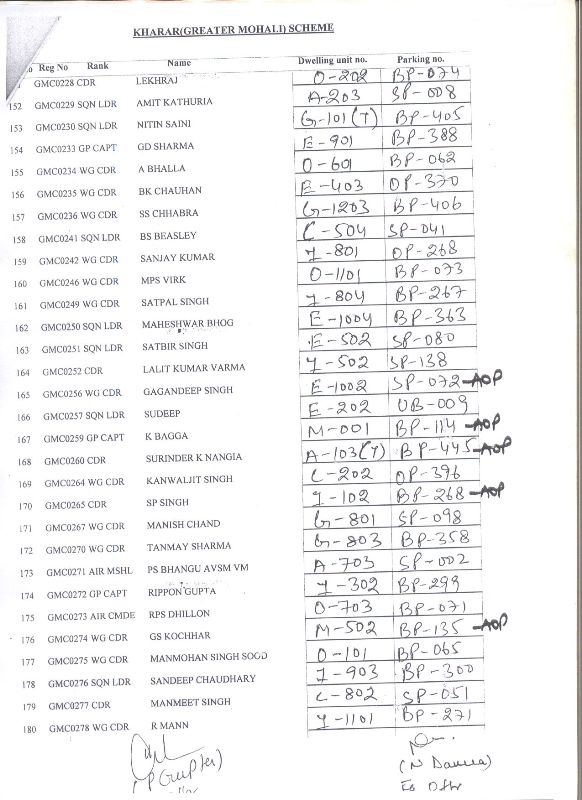 KHARAR(GREATER MOHALI) SCHEME
Reg No Rank Name Dwelling unit no. Parking no.
GMC0228 CDR LEKHRAJ O-202 BP-074
152 GMC0229 SQN LDR AMIT KATHURIA A-203 SP-008
153 GMC0230 SQN LDR NITIN SAINI G-101(T) BP-405
154 GMC0233 GP CAPT GD SHARMA E-901 BP-388
155 GMC0234 WG CDR A BHALLA O-601 BP-062
156 GMC0235 WG CDR BK CHAUHAN E-403 OP-370
157 GMC0236 WG CDR SS CHHABRA G-1203 BP-406
158 GMC0241 SQN LDR BS BEASLEY C-504 SP-041
159 GMC0242 WG CDR SANJAY KUMAR J-801 OP-268
160 GMC0246 WG CDR MPS VIRK O-1101 BP-073
161 GMC0249 WG CDR SATPAL SINGH J-804 BP-267
162 GMC0250 SQN LDR MAHESHWAR BHOG E-1004 BP-363
163 GMC0251 SQN LDR SATBIR SINGH E-502 SP-080
164 GMC0252 CDR LALIT KUMAR VARMA J-502 SP-138
165 GMC0256 WG CDR GAGANDEEP SINGH E-1002 SP-072-AOP
166 GMC0257 SQN LDR SUDEEP E-202 UB-009
167 GMC0259 GP CAPT K BAGGA M-001 BP-114-AOP
168 GMC0260 CDR SURINDER K NANGIA A-103(T) BP-445-AOP
169 GMC0264 WG CDR KANWALJIT SINGH C-202 OP-396
170 GMC0265 CDR SP SINGH J-102 BP-268-AOP
171 GMC0267 WG CDR MANISH CHAND G-801 SP-098
172 GMC0270 WG CDR TANMAY SHARMA G-803 BP-358
173 GMC0271 AIR MSHL PS BHANGU AVSM VM A-703 SP-002
174 GMC0272 GP CAPT RIPPON GUPTA J-302 BP-299
175 GMC0273 AIR CMDE RPS DHILLON O-703 BP-071
176 GMC0274 WG CDR GS KOCHHAR M-502 BP-135-AOP
177 GMC0275 WG CDR MANMOHAN SINGH SOOD O-101 BP-065
178 GMC0276 SQN LDR SANDEEP CHAUDHARY J-903 BP-300
179 GMC0277 CDR MANMEET SINGH C-802 SP-051
180 GMC0278 WG CDR R MANN J-1101 BP-271
(P Gupter)